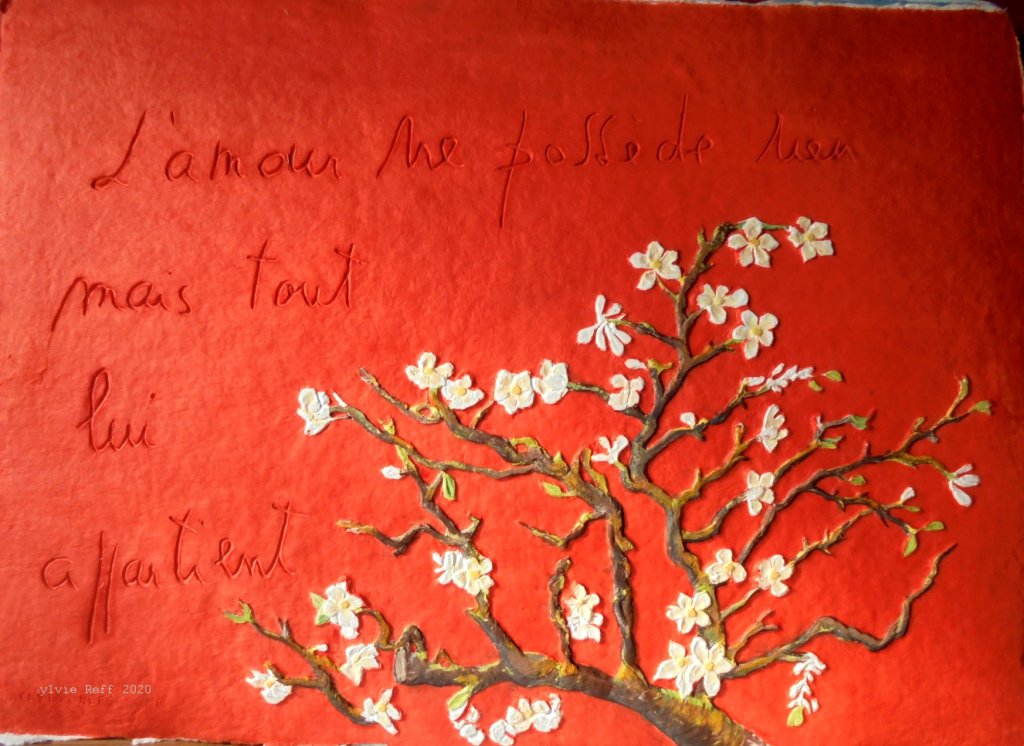 L'amour ne possède rien
mais tout
lui
appartient
ylvie Reff 2020